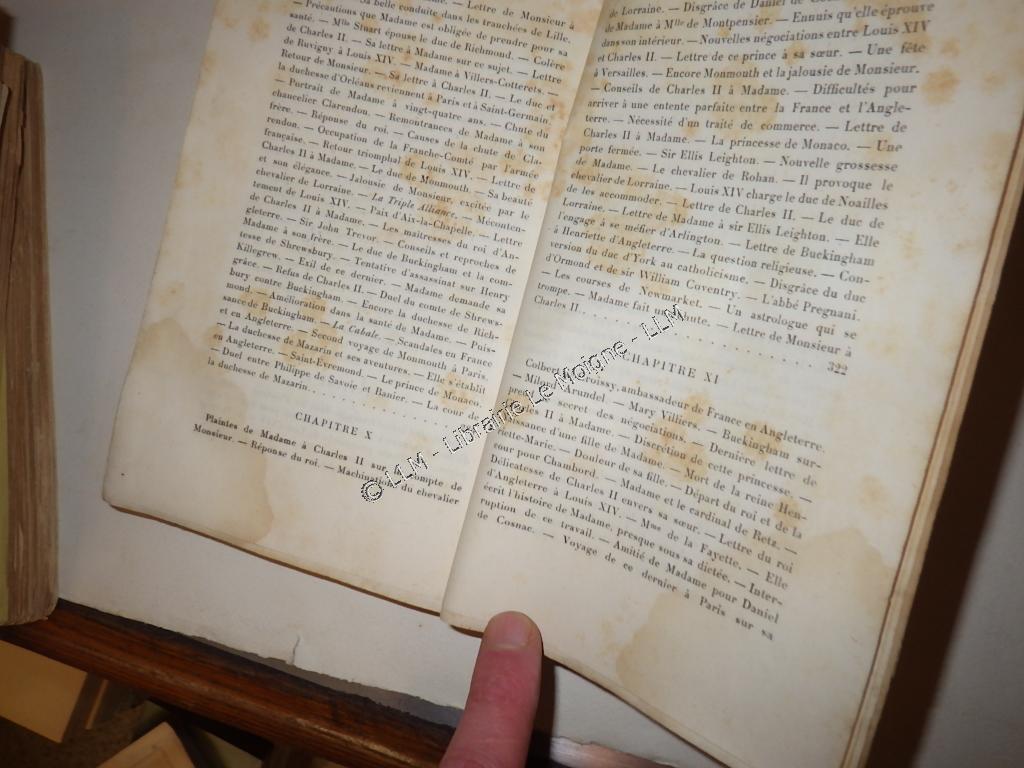 Lettre de Monsieur à
Sa belle conduite dans les tranchées de Lille.
— Précautions que Madame est obligée de prendre pour sa
santé. — Mlle Stuart épouse le duc de Richmond. — Colère
de Charles II. — Sa lettre à Madame sur ce sujet. — Lettre
de Ruvigny à Louis XIV. — Madame à Villers-Cotterets. —
Retour de Monsieur. — Sa lettre à Charles II. — Le duc et
la duchesse d'Orléans reviennent à Paris et à Saint-Germain.
— Portrait de Madame à vingt-quatre ans. — Chute du
chancelier Clarendon. — Remontrances de Madame à son
frère. — Réponse du roi. — Causes de la chute de Cla-
rendon. — Occupation de la Franche-Comté par l'armée
française. — Retour triomphal de Louis XIV. — Lettre de
Charles II à Madame. — Le duc de Monmouth. — Sa beauté
et son élégance. — Jalousie de Monsieur, excitée par le
chevalier de Lorraine. — La Triple Alliance. — Méconten-
tement de Louis XIV. — Paix d'Aix-la-Chapelle. — Lettre
de Charles II à Madame. — Les maîtresses du roi d'An-
gleterre. — Sir John Trevor. — Conseils et reproches de
Madame à son frère. — Le duc de Buckingham et la com-
tesse de Shrewsbury. — Tentative d'assassinat sur Henry
Killegrew. — Exil de ce dernier. — Madame demande sa
grâce. — Refus de Charles II. — Duel du comte de Shrews-
bury contre Buckingham. — Encore la duchesse de Rich-
mond. — Amélioration dans la santé de Madame. — Puis-
sance de Buckingham. — La Cabale. — Scandales en France
et en Angleterre. — Second voyage de Monmouth à Paris.
— La duchesse de Mazarin et ses aventures. — Elle s'établit
en Angleterre. — Saint-Évremond. — Le prince de Monaco.
— Duel entre Philippe de Savoie et Banier. — La cour de
la duchesse de Mazarin.
CHAPITRE X
Plaintes de Madame à Charles II sur le compte de
Monsieur. — Réponse du roi. — Machinations du chevalier
de Lorraine. — Disgrâce de Daniel de
de Madame à Mlle de Montpensier. — Ennuis qu'elle éprouve
dans son intérieur. — Nouvelles négociations entre Louis XIV
et Charles II. — Lettre de ce prince à sa sœur. — Une fête
à Versailles. — Encore Monmouth et la jalousie de Monsieur.
— Conseils de Charles II à Madame. — Difficultés pour
arriver à une entente parfaite entre la France et l'Angle-
terre. — Nécessité d'un traité de commerce. — Lettre de
Charles II à Madame. — La princesse de Monaco. — Une
porte fermée. — Sir Ellis Leighton. — Nouvelle grossesse
de Madame. — Le chevalier de Rohan. — Il provoque le
chevalier de Lorraine. — Louis XIV charge le duc de Noailles
de les accommoder. — Lettre de Charles II. — Le duc de
Lorraine. — Lettre de Madame à sir Ellis Leighton. — Elle
l'engage à se méfier d'Arlington. — Lettre de Buckingham
à Henriette d'Angleterre. — La question religieuse. — Con-
version du duc d'York au catholicisme. — Disgrâce du duc
d'Ormond et de sir William Coventry. — L'abbé Pregnani.
— Les courses de Newmarket. — Un astrologue qui se
trompe. — Madame fait une chute. — Lettre de Monsieur à
Charles II. 322
CHAPITRE XI
Colbert de Croissy, ambassadeur de France en Angleterre.
— Milord Arundel. — Mary Villiers. — Buckingham sur-
prend le secret des négociations. — Dernière lettre de
Charles II à Madame. — Discrétion de cette princesse. —
Naissance d'une fille de Madame. — Mort de la reine Hen-
riette-Marie. — Douleur de sa fille. — Départ du roi et de la
cour pour Chambord. — Madame et le cardinal de Retz. —
Délicatesse de Charles II envers sa sœur. — Lettre du roi
d'Angleterre à Louis XIV. — Mme de la Fayette. — Elle
écrit l'histoire de Madame, presque sous sa dictée. — Inter-
ruption de ce travail. — Amitié de Madame pour Daniel
de Cosnac. — Voyage de ce dernier à Paris sur sa
© LLM - Librairie Le Moigne - LLM